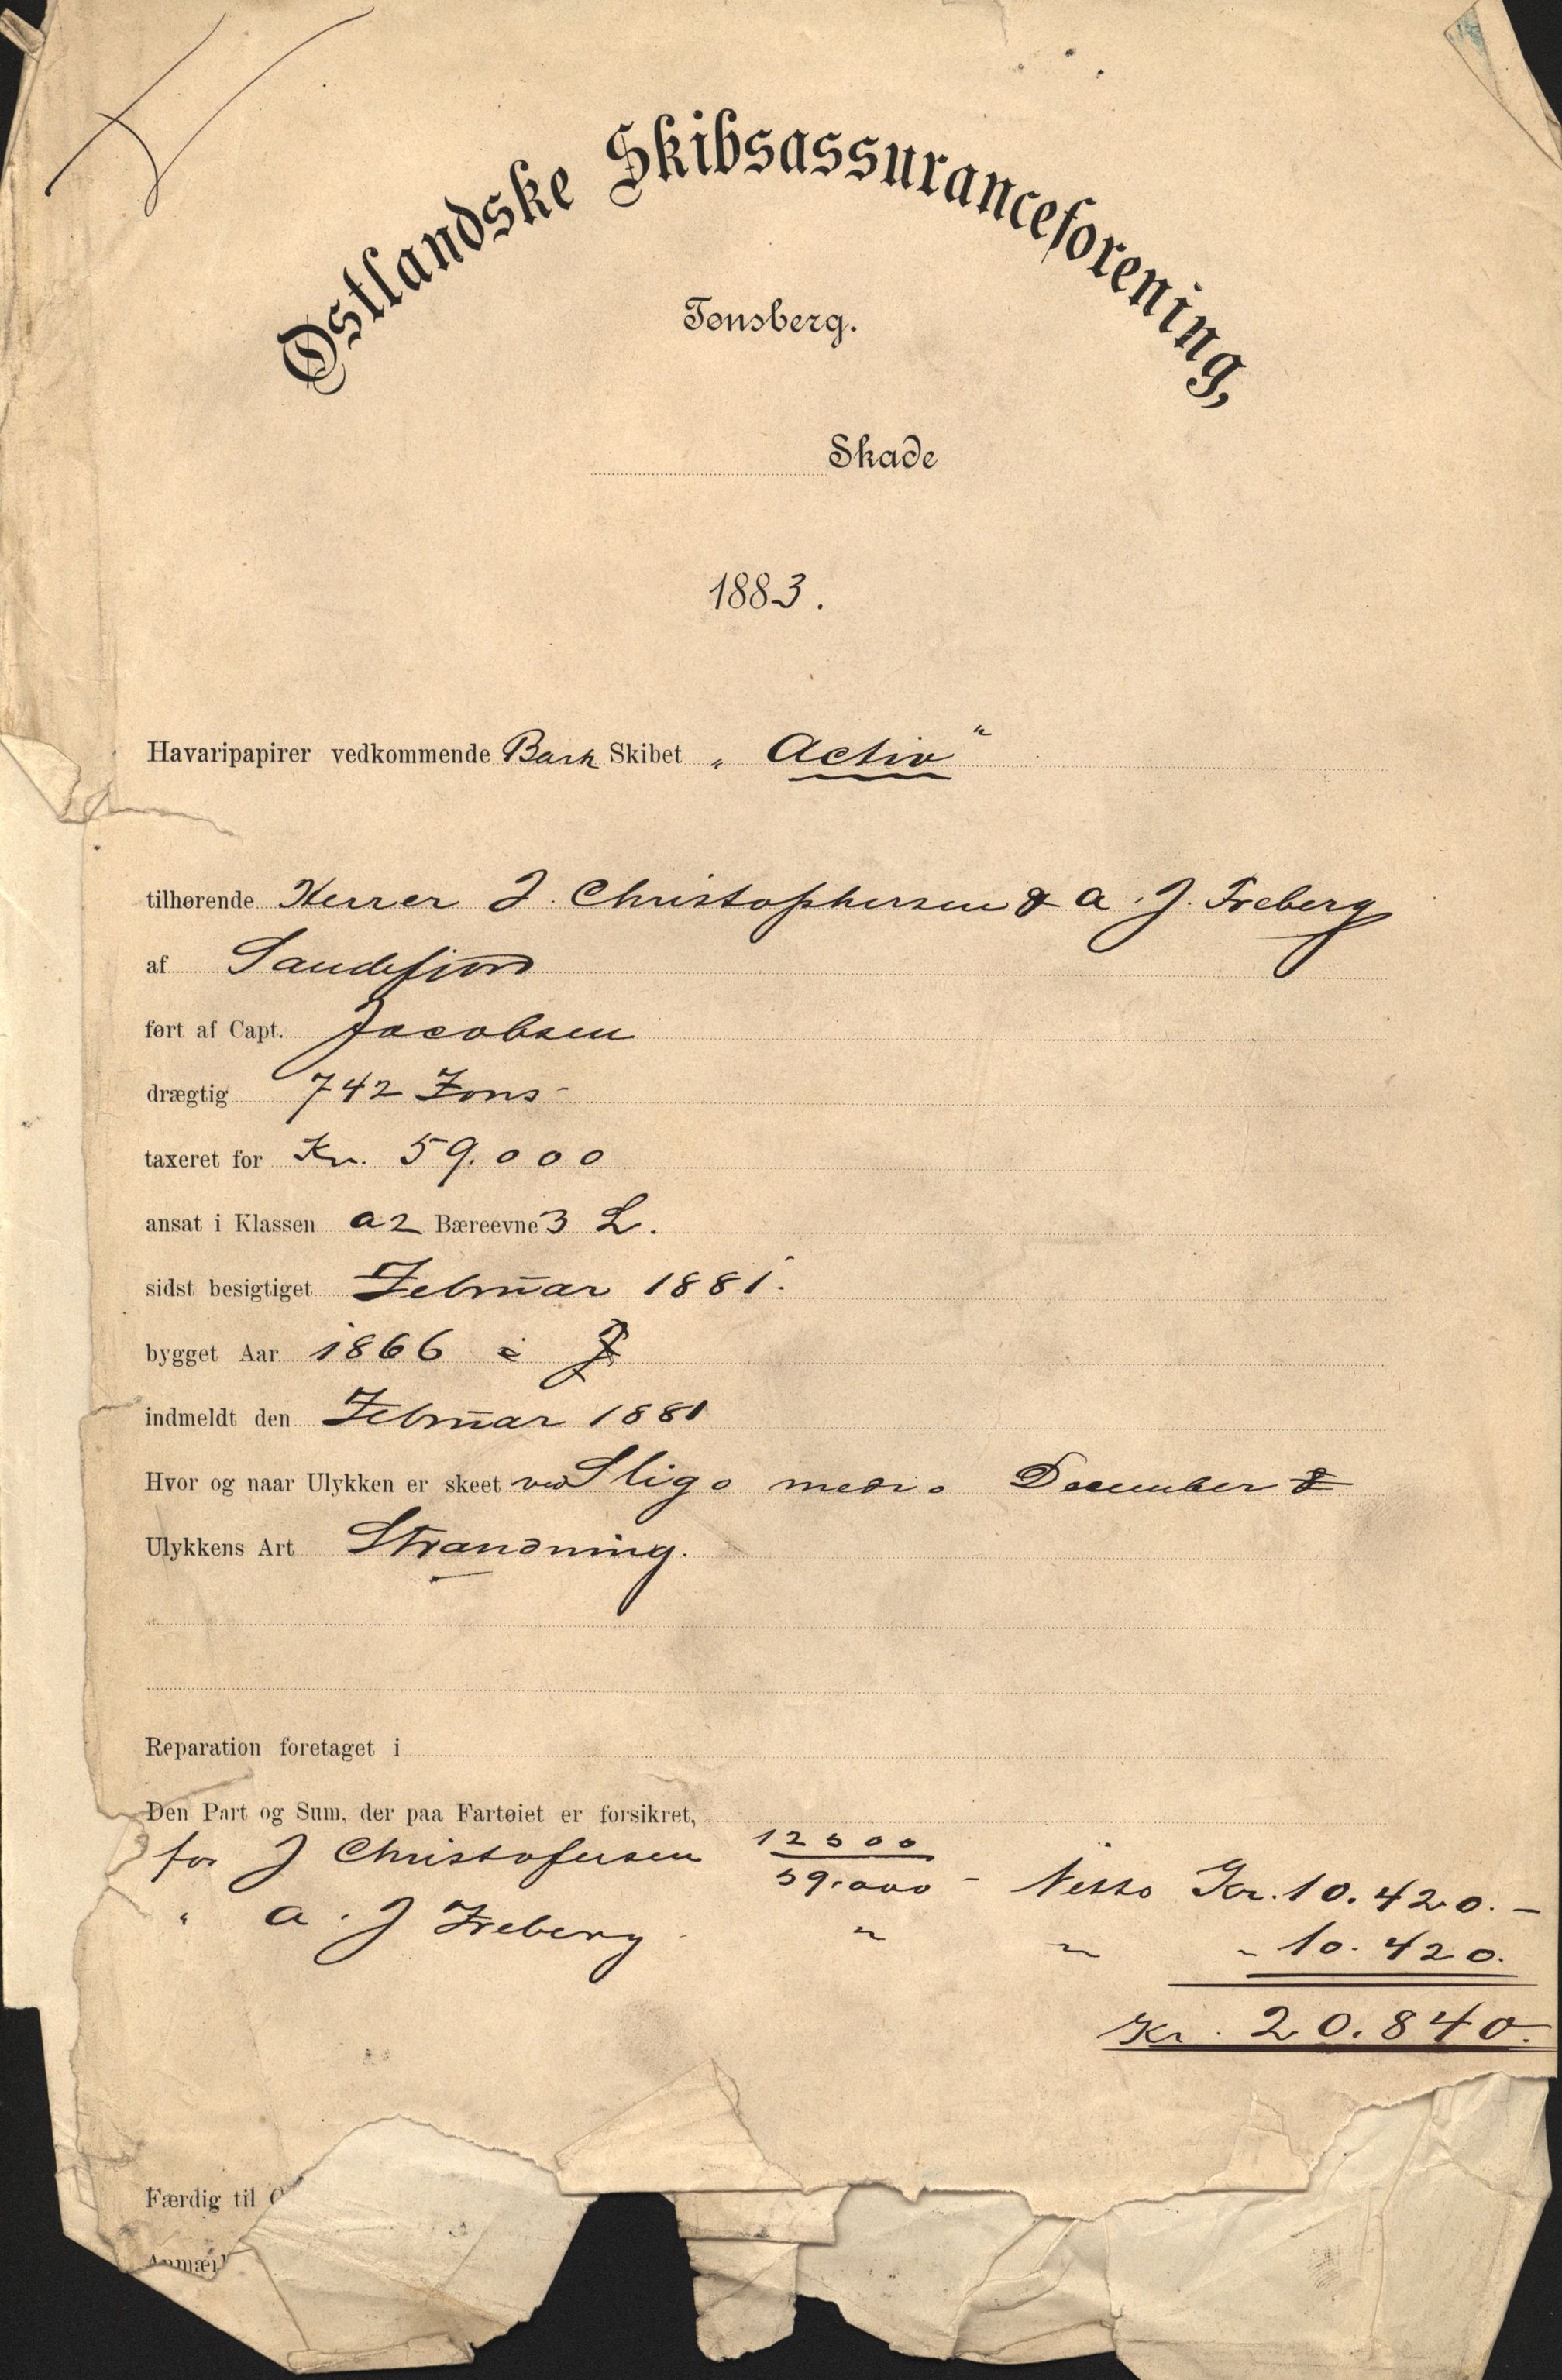 Østlandske Skibsassuranceforening,
Tønsberg.
Skade
1883.
Havaripapirer vedkommende Bark Skibet „ Activ "
tilhørende Herrer J. Christophersen & A. J. Freberg
af Sandefjord
ført af Capt. Jacobsen
drægtig 742 Tons
taxeret for Kr. 59.000
ansat i Klassen a2 Bæreevne 3 L.
sidst besigtiget Februar 1881.
bygget Aar 1866 i
indmeldt den Februar 1881
Hvor og naar Ulykken er skeet ved Sligo medio December
Ulykkens Art Strandning.
Reparation foretaget i
Den Part og Sum, der paa Fartøiet er forsikret,
for J Christofersen 12500/59.000 - Netto Kr. 10.420. -
" A. J Freberg " " " 10.420.
Kr. 20.840.
Færdig til